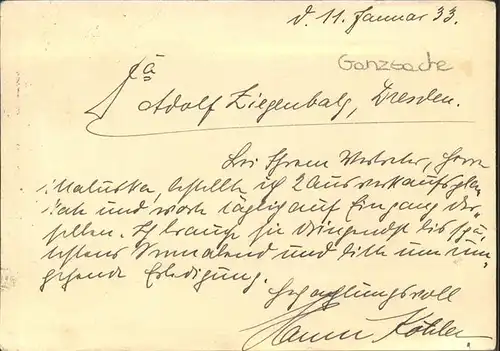 d. 11. Januar 33.
Ganzsache
Fa
Adolf Ziegenbalg, Dresden.
Bei Ihrem Vertreter, Herrn
Maluska, bestellte ich 2 Ausverkaufspla-
kate und warte täglich auf Eingang der-
selben. Ich brauche sie dringendst bis spä-
testens Sonnabend und bitte um um-
gehende Erledigung.
Hochachtungsvoll
Hanna Köhler.